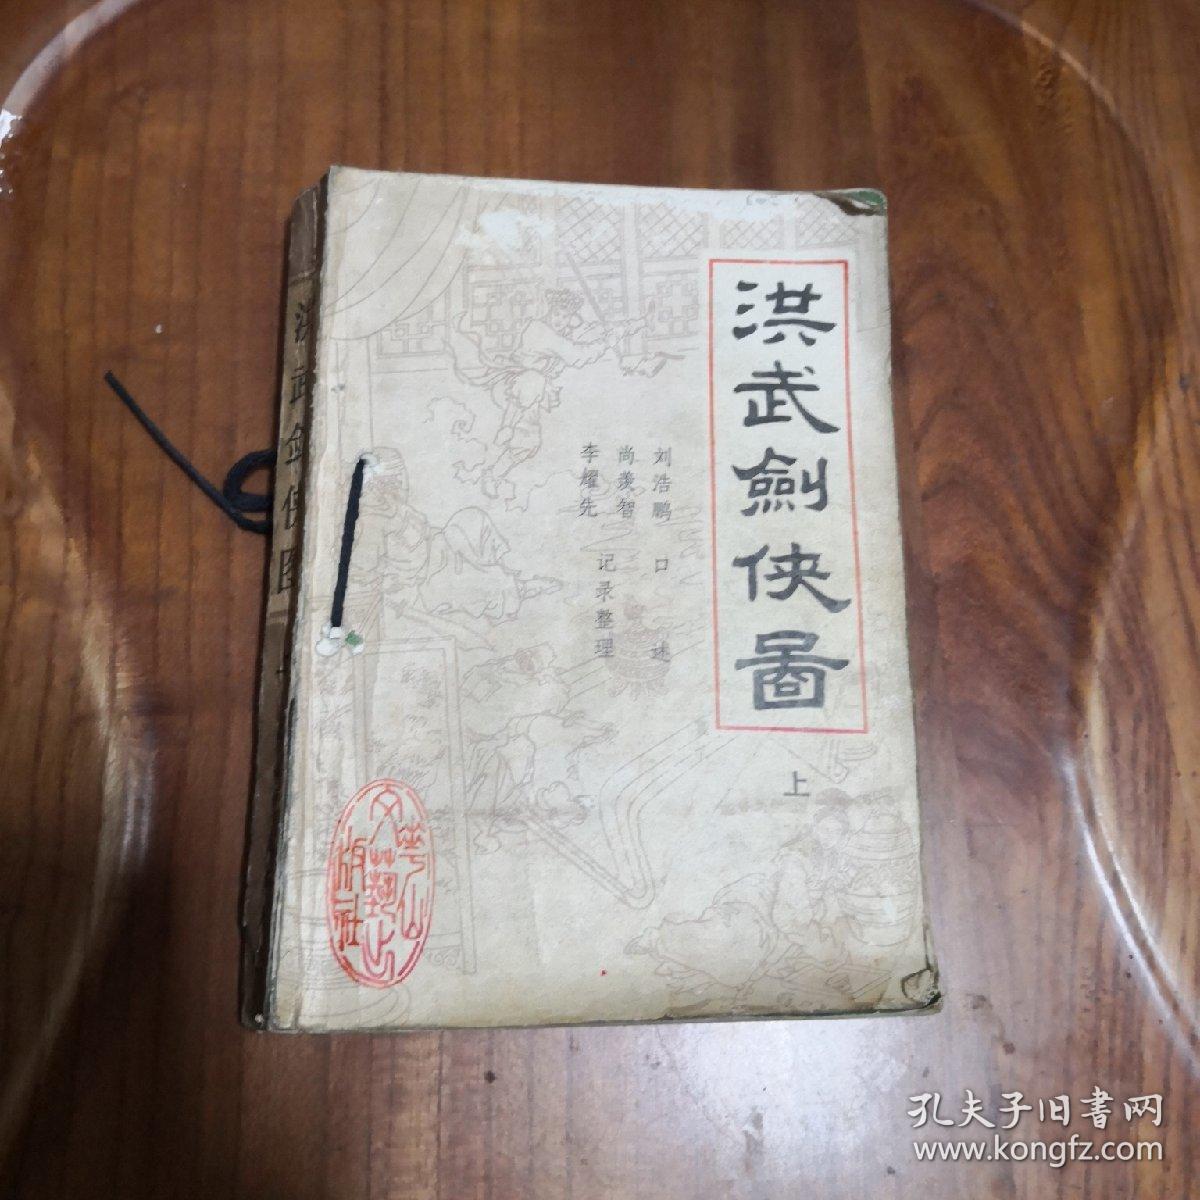 洪武劍俠圖
上
刘浩鹏 口述
尚羡智
李耀先
记录整理
花山文艺出版社
洪武剑侠图
孔夫子旧書网
www.kongfz.com